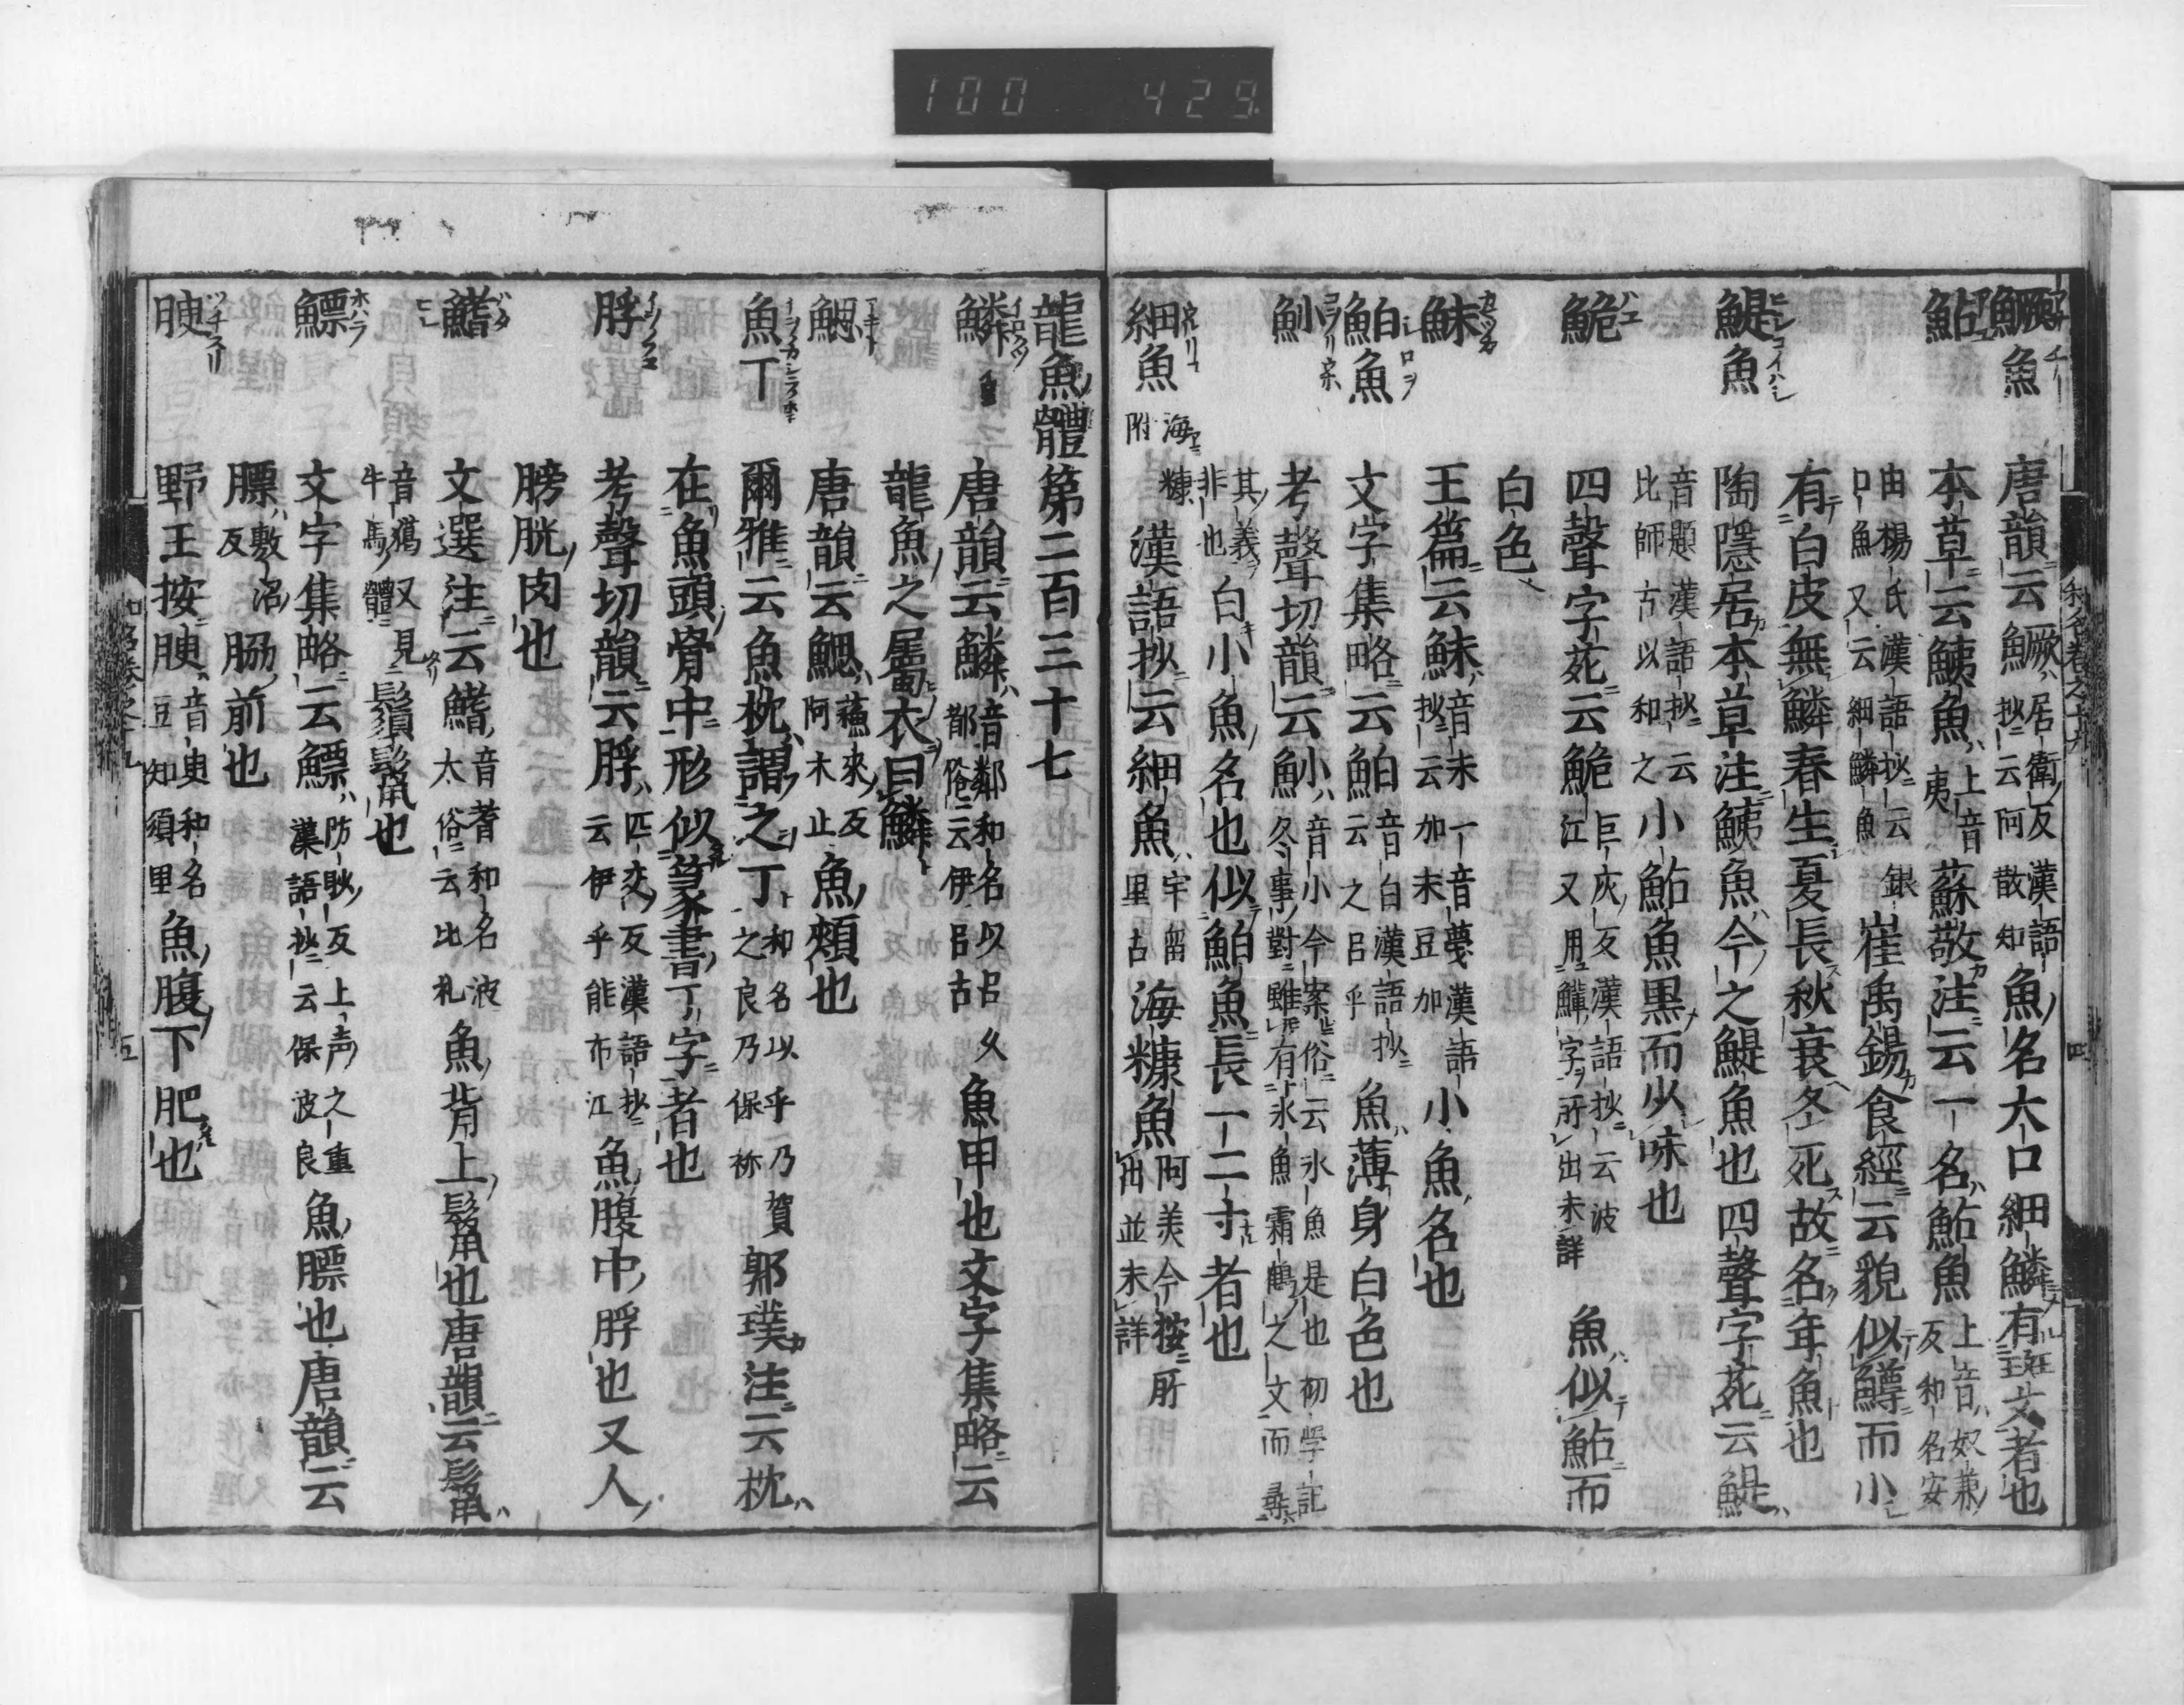 100 429
鱖魚 唐韻云鱖居衛反漢語抄云阿散知魚名大口細鱗有斑文者也
鮎 本草云鮧魚上音夷蘇敬注云一名鮎魚上音奴兼反和名安
由楊氏漢語抄云銀口魚又云細鱗魚崔禹錫食經云貌似鱒而小
有白皮無鱗春生夏長秋衰冬死故名年魚也
鯷魚 陶隱居本草注鮧魚今之鯷魚也四聲字苑云鯷
音題漢語抄云比師古以和之小鮎魚黒而少味也
鮠 四聲字苑云鮠巨灰反漢語抄云波江又用䱤字所出未詳魚似鮎而
白色
鮇 玉篇云鮇音未一音夢漢語抄云加末豆加小魚名也
鮊魚 文字集略云鮊音白漢語抄云之呂乎魚薄身白色也
魦 考聲切韻云魦音小今案俗云氷魚是也初學記冬事對雖有氷魚霜鶴之文而尋
其義非也白小魚名也似鮊魚長一二寸者也
細魚 海糠附 漢語抄云細魚宇留里古海糠魚阿美今按所出並未詳
和名卷之十九 四
龍魚體第二百三十七
鱗 唐韻云鱗音鄰和名以呂久都俗云伊呂古魚甲也文字集略云
龍魚之屬衣曰鱗
鰓 唐韻云鰓蘇來反阿木止魚頰也
魚丁 爾雅云魚枕謂之丁和名以乎乃賀之良乃保祢郭璞注云枕
在魚頭骨中形似篆書丁字者也
脬 考聲切韻云脬匹交反漢語抄云伊乎能布江魚腹中脬也又人
膀胱肉也
鰭 文選注云鰭音耆和名波太俗云比礼魚背上鬣也唐韻云鬣
音獵又見牛馬體鬚鬣也
鰾 文字集略云鰾防眇反上声之重漢語抄云保波良魚膘也唐韻云
膘敷沼反脇前也
腴 野王按腴音臾和名豆知須里魚腹下肥也
五